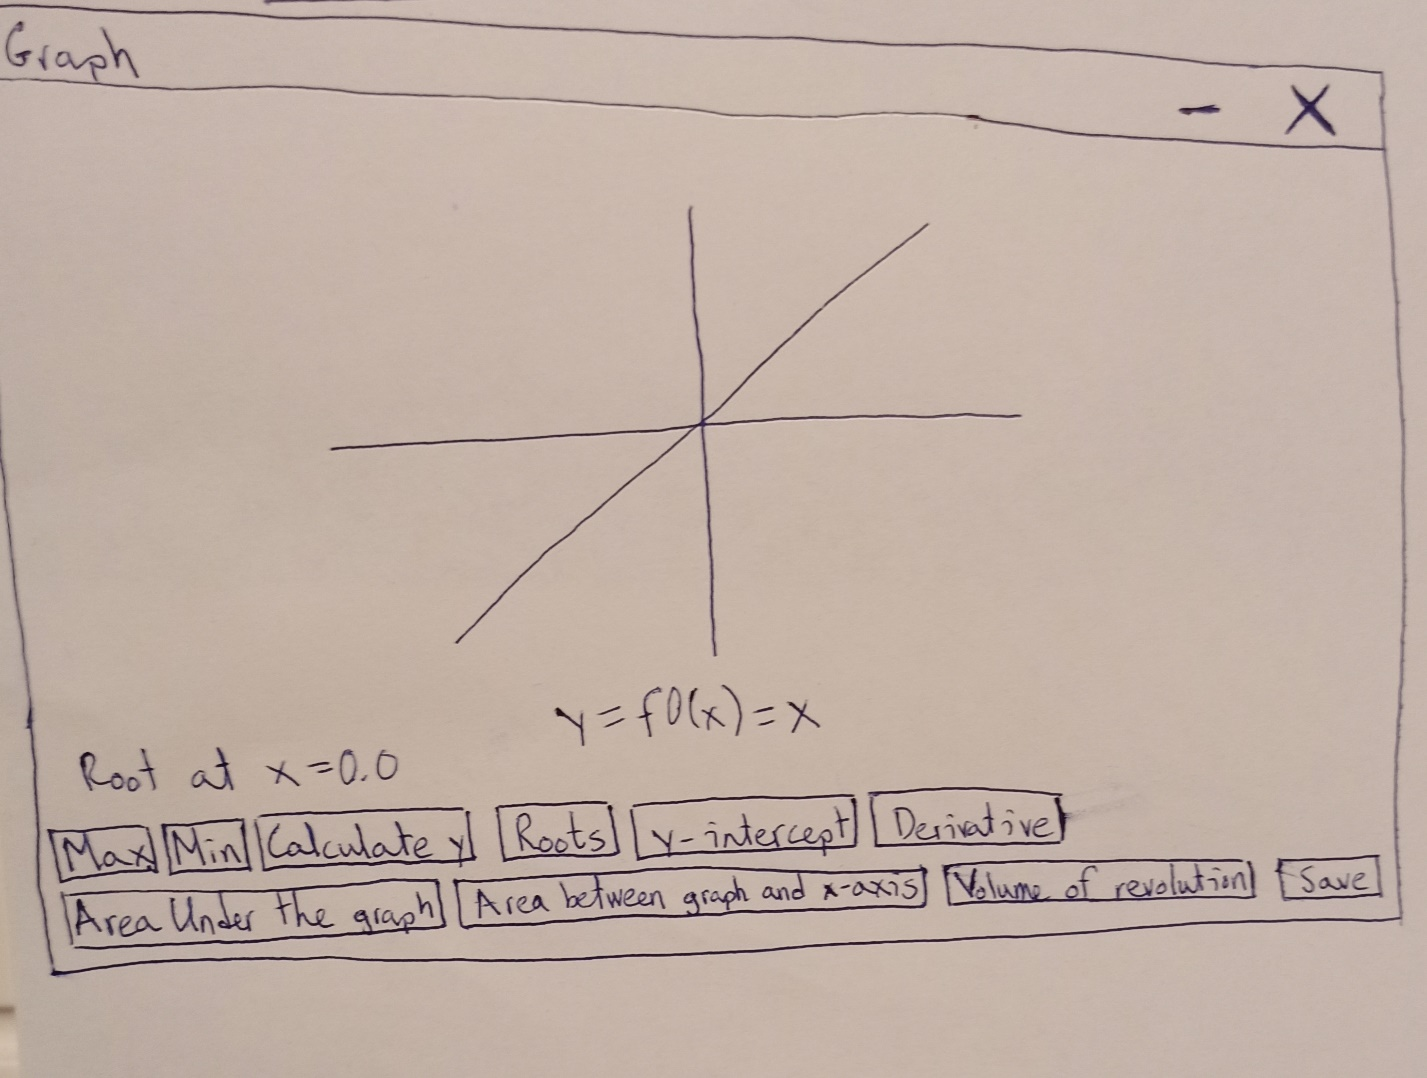 Graph
- X
y = f0(x) = x
Root at x = 0.0
Max Min Calculate y Roots y-intercept Derivative
Area Under the graph Area between graph and x-axis Volume of revolution Save